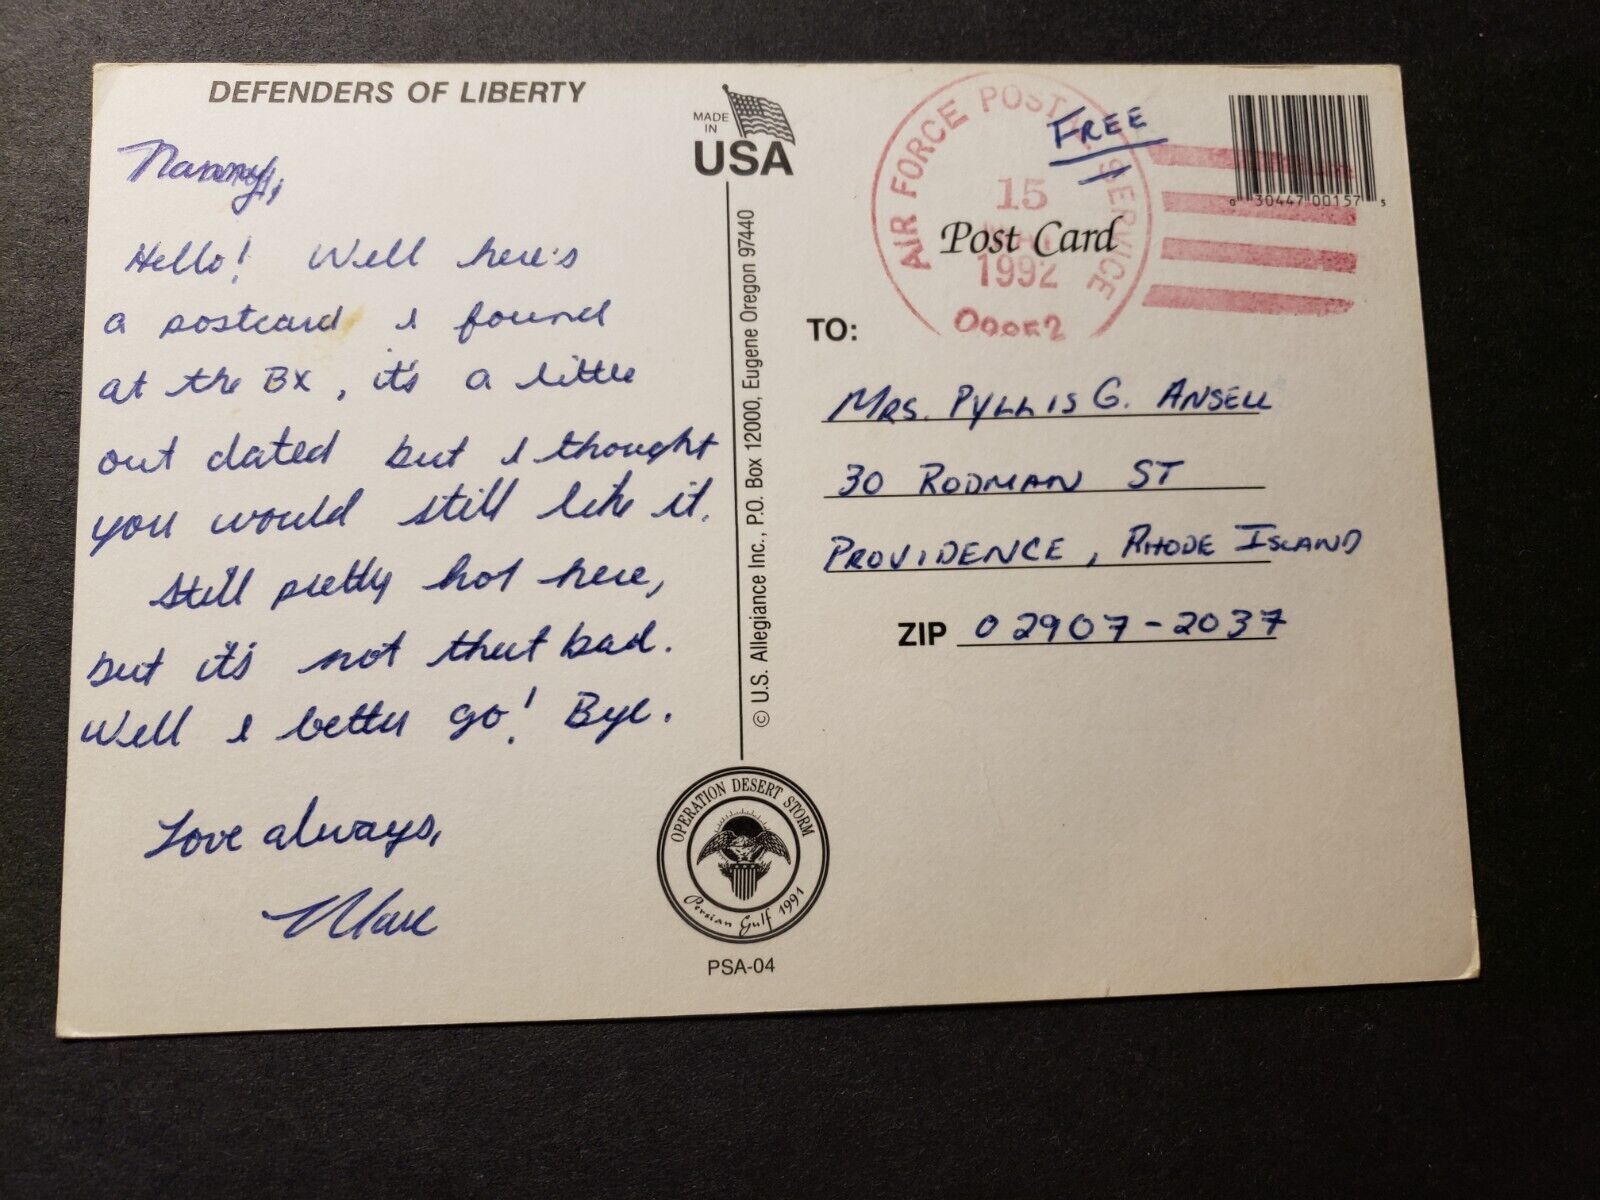 DEFENDERS OF LIBERTY
Nanny,
Hello! Well here's
a postcard I found
at the BX, it's a little
out dated but I thought
you would still like it.
Still pretty hot here,
but it's not that bad.
Well I better go! Bye.
Love always,
MADE
IN
USA
© U.S. Allegiance Inc., P.O. Box 12000, Eugene Oregon 97440
OPERATION DESERT STORM
Persian Gulf 1991
PSA-04
AIR FORCE POSTAL SERVICE
15
1992
FREE
0 30447 00157 5
Post Card
TO:
MRS. PYLLIS G. ANSELL
30 RODMAN ST
PROVIDENCE, RHODE ISLAND
ZIP 02907-2037